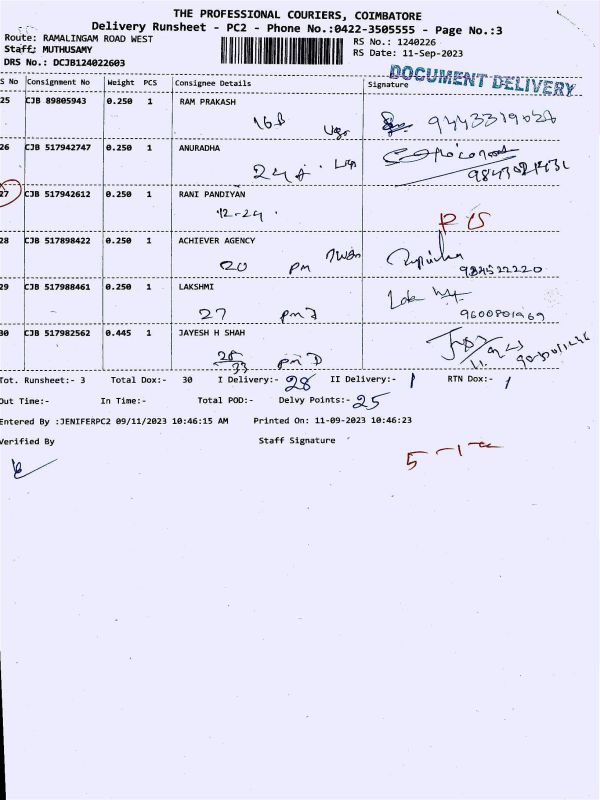 THE PROFESSIONAL COURIERS, COIMBATORE
Delivery Runsheet - PC2 - Phone No.:0422-3505555 - Page No.:3
Route: RAMALINGAM ROAD WEST
RS No.: 1240226
Staff: MUTHUSAMY
RS Date: 11-Sep-2023
DRS No.: DCJB124022603
DOCUMENT DELIVERY
S No Consignment No Weight PCS Consignee Details Signature
25 CJB 89805943 0.250 1 RAM PRAKASH
26 CJB 517942747 0.250 1 ANURADHA
24
27 CJB 517942612 0.250 1 RANI PANDIYAN
12-24
28 CJB 517898422 0.250 1 ACHIEVER AGENCY
20 pm
29 CJB 517988461 0.250 1 LAKSHMI
27
9600801969
30 CJB 517982562 0.445 1 JAYESH H SHAH
28
33
Tot. Runsheet:- 3 Total Dox:- 30 I Delivery:- 28 II Delivery:- 1 RTN Dox:- 1
Out Time:- In Time:- Total POD:- Delvy Points:- 25
Entered By :JENIFERPC2 09/11/2023 10:46:15 AM Printed On: 11-09-2023 10:46:23
Verified By Staff Signature